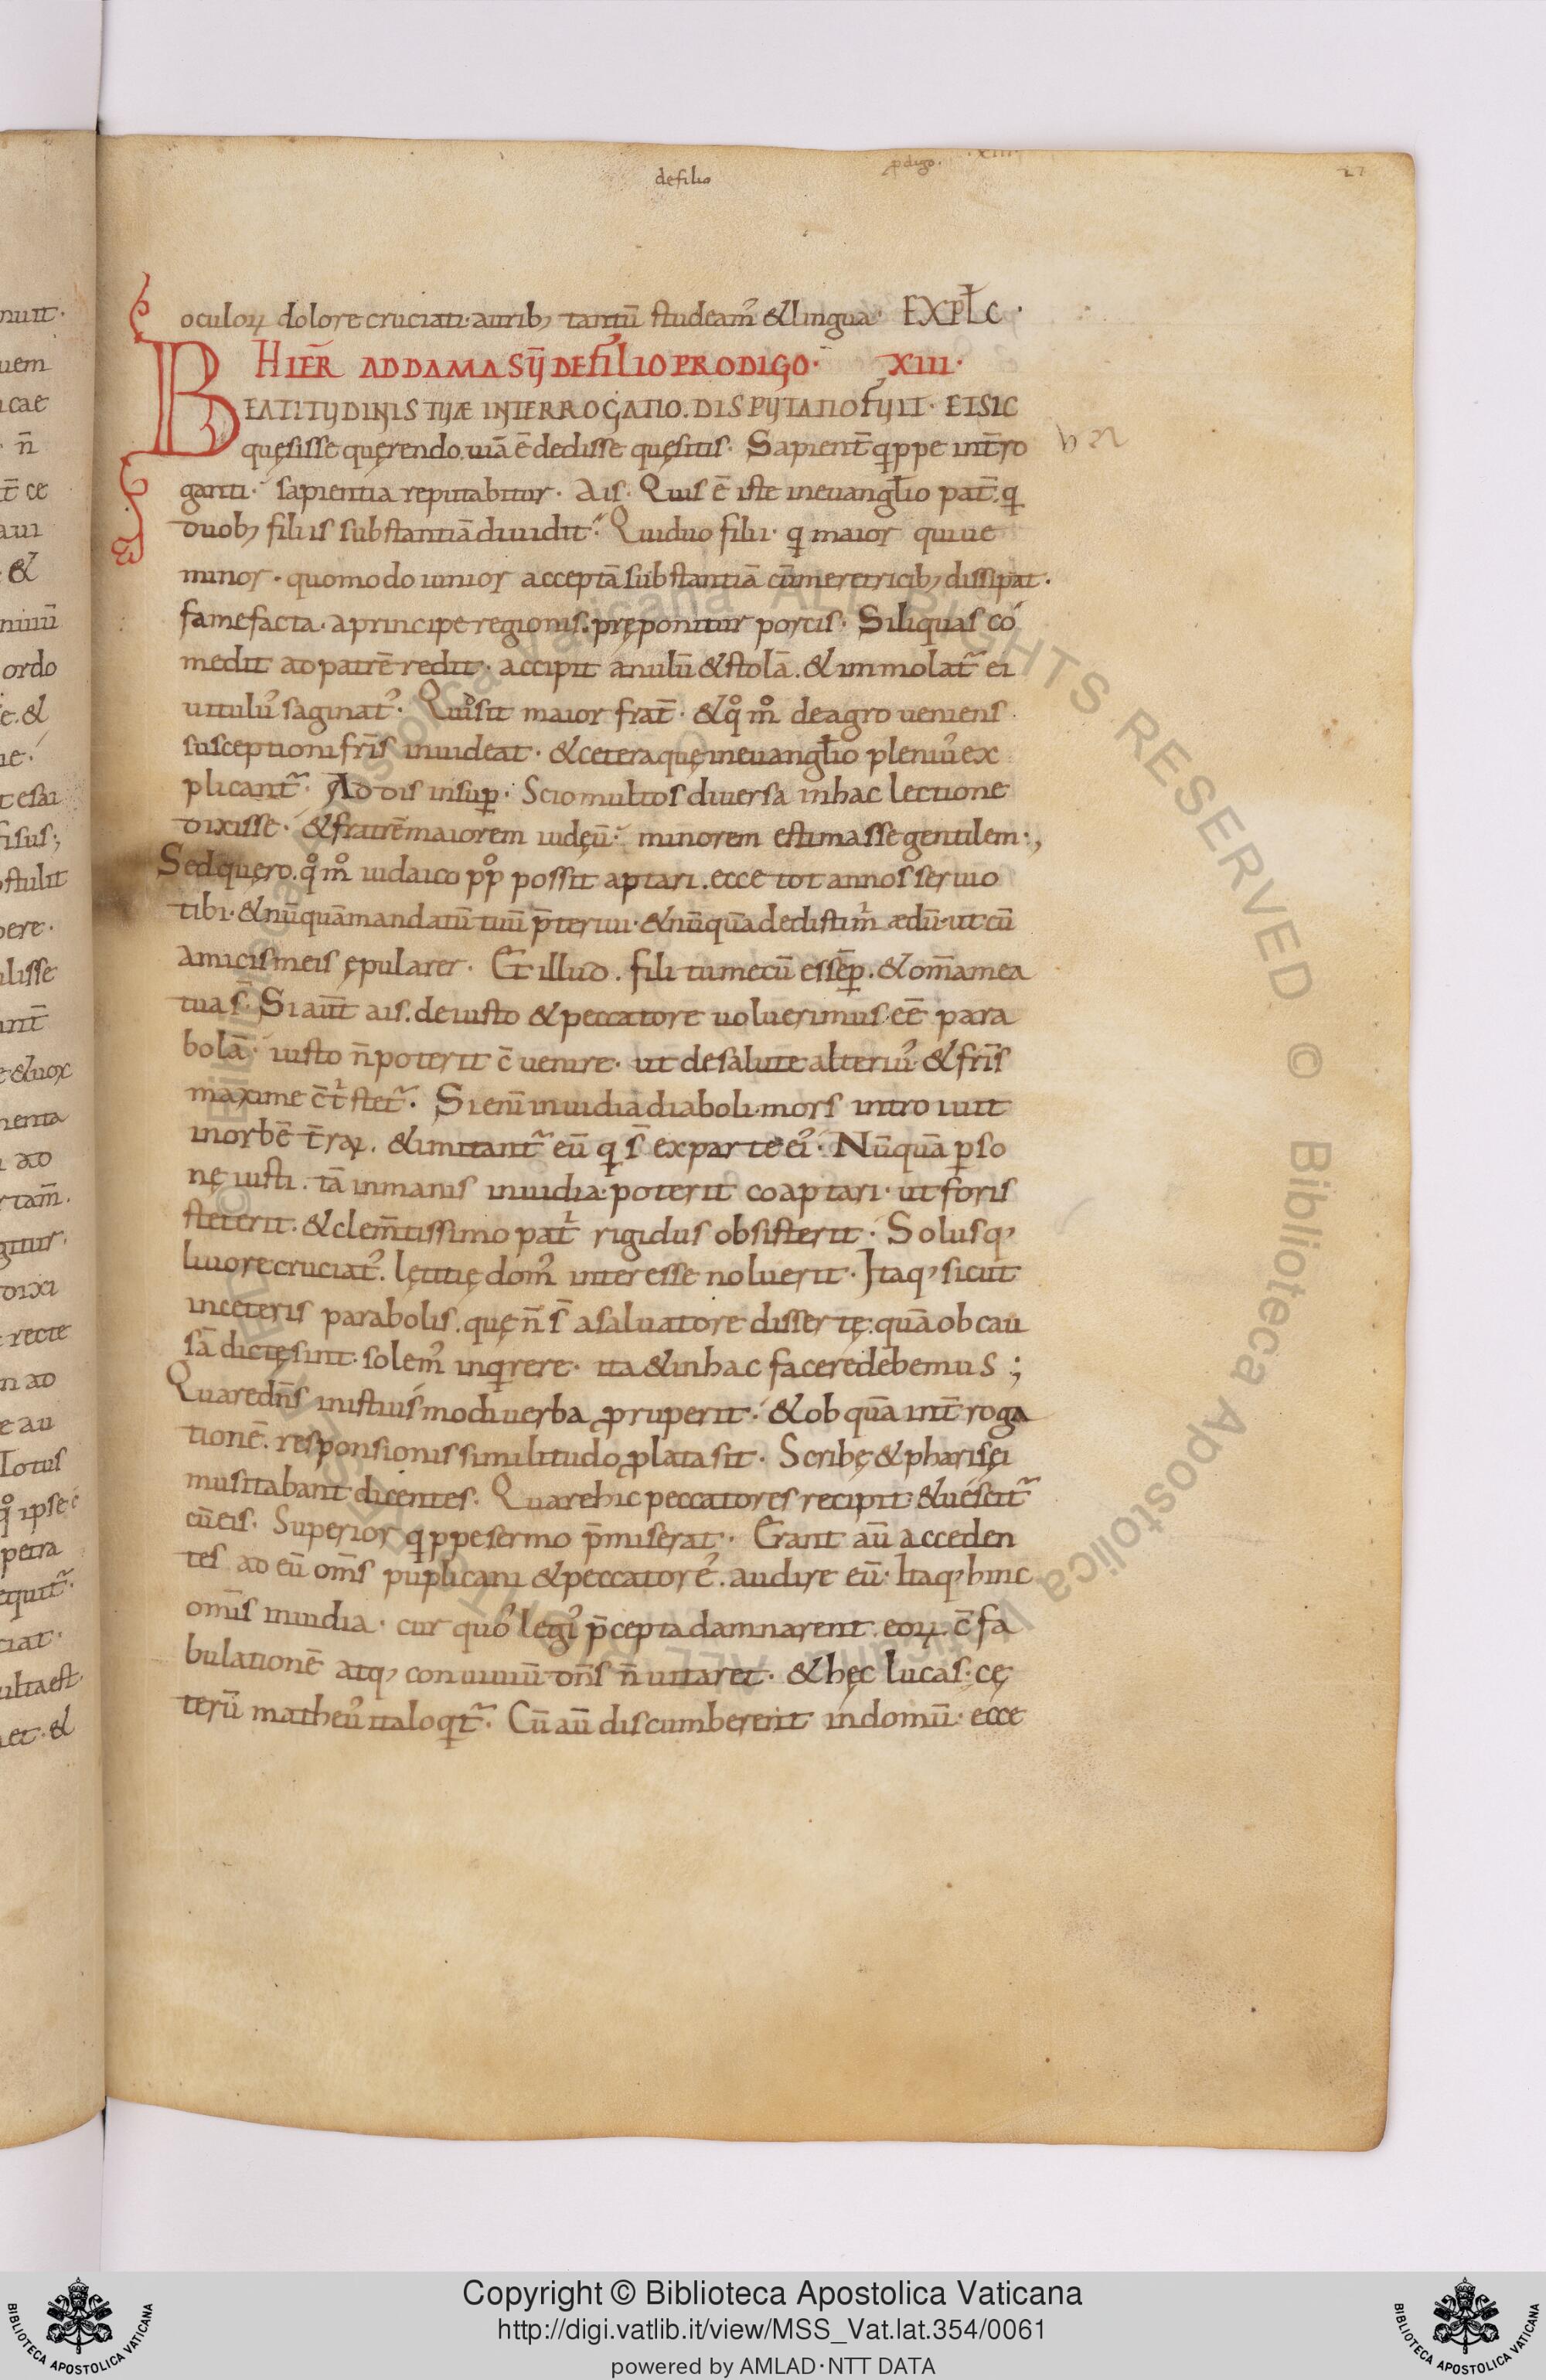 defilio
ꝓdigo. ·XIII·
27
oculoꝝ dolore cruciati·aurib; tantū studeam᾿ &lingua· EXPŁC·
HIER̄ ADDAMASŪ DEFILIO PRODIGO· XIII·
BEATITUDINIS TUÆ INTERROGATIO.DISPUTATIO FUIT· ET SIC
quęsisse quęrendo.uiā ē dedisse quęsitis· Sapient̄ qppe int̄ro
ganti· sapientia reputabitur· Ais· Quis ē iste ineuangł̄io pat̄.q
duob; filiis substantiā diuidit· Quiduo filii· q maior quiue
minor· quomodo iunior acceptā substantiā cūmeretricib; dissipat·
famefacta· aprincipe regionis.pręponitur porcis· Siliquas cō
medit ad patrē redit· accipit anulū &stolā.&immolat᷒ ei
uitulu᾿ saginat᾿· Quisit maior frat̄· &qͦ mͦ deagro ueniens
susceptioni fr̄is inuideat· &ceteraquęineuangł̄io pleniu᾿ ex
plicant᷒· Addis insuꝑ· Scio multos diuersa inhac lectione
dixisse· &fratrē maiorem iudęū· minorem estimasse gentilem·,
Sedquęro.qͦ mͦ iudaico ppͦ possit aptari.ecce tot annos seruio
tibi·&nūquā mandatū tuū p̄teriui·&nūquā dedisti m̄ ædū·ut cū
amicis meis ępularer· Et illud. fili tumecū es sēꝑ.&om̄amea
tua s̄· Si aūt ais.deiusto &peccatore uoluerimus ēe para
bolā· iusto n̄ poterit c̄ uenire· ut desalute alteriu᾿ &fr̄is
maxime c̄tstet᷒· Si eni inuidia diaboli·mors introiuit
inorbē t̄raꝝ. &imitant᷒ eū q s̄ exparte ei᾿· Nūquā ꝑso
nę iusti. tā inmanis inuidia·poterit coaptari· ut foris
steterit.&clem̄tissimo pat̄ rigidus obsisterit· Solusq;
liuore cruciat᾿. lętitię dom᾿ interesse noluerit· Itaq; sicut
inceteris parabolis.quę n̄ s̄ asaluatore dissertę·quā ob cau
sā dictę sint· solem᾿ inqrere· ita &inhac facere debemus;
Quare dn̄s inistiusmodi uerba ꝓruperit· &ob quā int̄roga
tionē. responsionis similitudo ꝓlata sit· Scribę &pharisęi
musitabant dicentes· Quare hic peccatores recipit·&uescit᷒
cū eis· Superior qppe sermo p̄miserat· Erant aū acceden
tes ad eū om̄s puplicani &peccatore᾿.audire eū· Itaq; hinc
om̄is inuidia· cur quo᾿ legi᾿ p̄cepta damnarent.eoꝝ.c̄fa
bulationē atq; conuiuiū dn̄s n̄ uitaret· &hęc lucas·cę
terū matheu᾿ italoqt᷒· Cū aū discumberent indomū· ecce
Copyright © Biblioteca Apostolica Vaticana
http://digi.vatlib.it/view/MSS_Vat.lat.354/0061
powered by AMLAD·NTT DATA